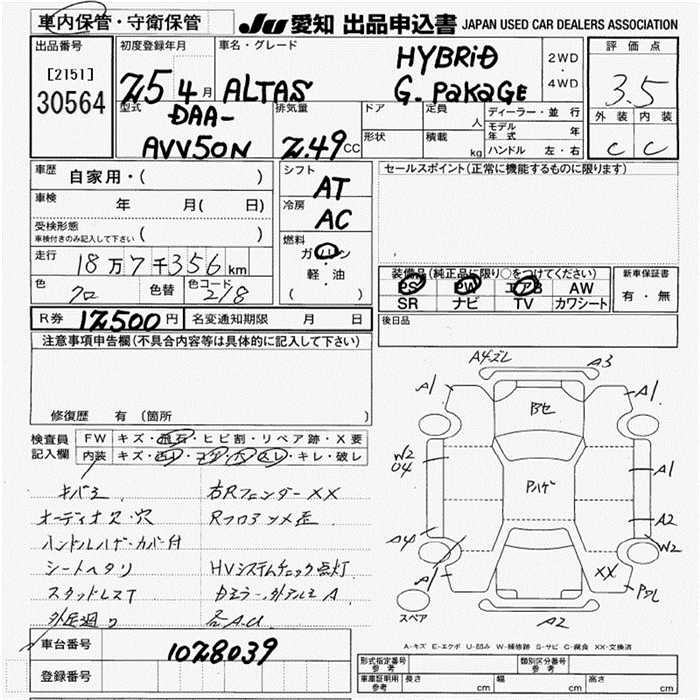 車内保管・守衛保管
JU 愛知 出品申込書 JAPAN USED CAR DEALERS ASSOCIATION
出品番号
[2151]
30564
初度登録年月
25 4月
車名・グレード
ALTAS
HYBRID
G. PaKaGE
2WD
・
4WD
評価点
3.5
外装 内装
C C
型式
DAA-
AVV50N
排気量
2.49 CC
ドア
形状
定員 人
積載 kg
ディーラー・並行
モデル年式 年
ハンドル 左・右
車歴 自家用・( )
車検 年 月( 日)
受検形態 ( )
車検付きのみ記入して下さい
走行 18万7千356km
色 クロ 色替 色コード 218
シフト
AT
冷房
AC
燃料
ガソリン
・
軽・油
( )
セールスポイント(正常に機能するものに限ります)
装備品(純正品に限り○をつけてください)
PS PW エアB AW
SR ナビ TV カワシート
新車保証書
有・無
R券 12500円 名変通知期限 月 日
後日品
注意事項申告欄(不具合内容等は具体的に記入して下さい)
修復歴 有(箇所 )
検査員
記入欄
FW キズ・飛石・ヒビ割・リペア跡・X要
内装 キズ・ヨゴレ・コゲ・穴・スレ・キレ・破レ
オーディオス・穴
ハンドルハゲ・カバー付
シートヘタリ
スタッドレスT
右RフェンダーXX
HVシステムチェック点灯
A4ズレ
A3
A1
A1
Bセ
W2
04
Pハゲ
A1
A2
A4
W2
A1
XX
A2
スペア
A-キズ E-エクボ U-凹み W-補修跡 S-サビ C-腐食 XX-交換済
車台番号 1028039
登録番号
形式指定番号
参考
類別区分番号
参考
車庫証明用
参考
長さ cm 幅 cm 高さ cm